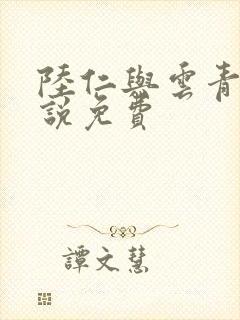 陸仁與雲青
說免費
譚文慧